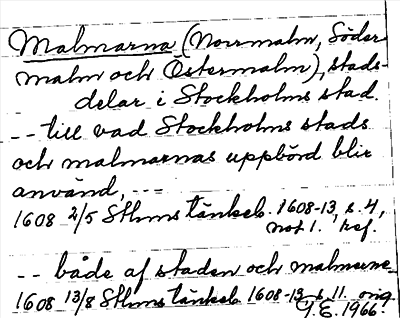 Malmarna (Norrmalm, Söder-
malm och Östermalm), stads-
delar i Stockholms stad.
-- till vad Stockholms stads
och malmarnas uppbörd blir
använd, ---
1608 2/5 Sthms tänkeb. 1608-13, s. 4,
not 1. ref.
-- både af staden och malmerne
1608 13/8 Sthms tänkeb. 1608-13 s. 11. orig.
G.E. 1966.